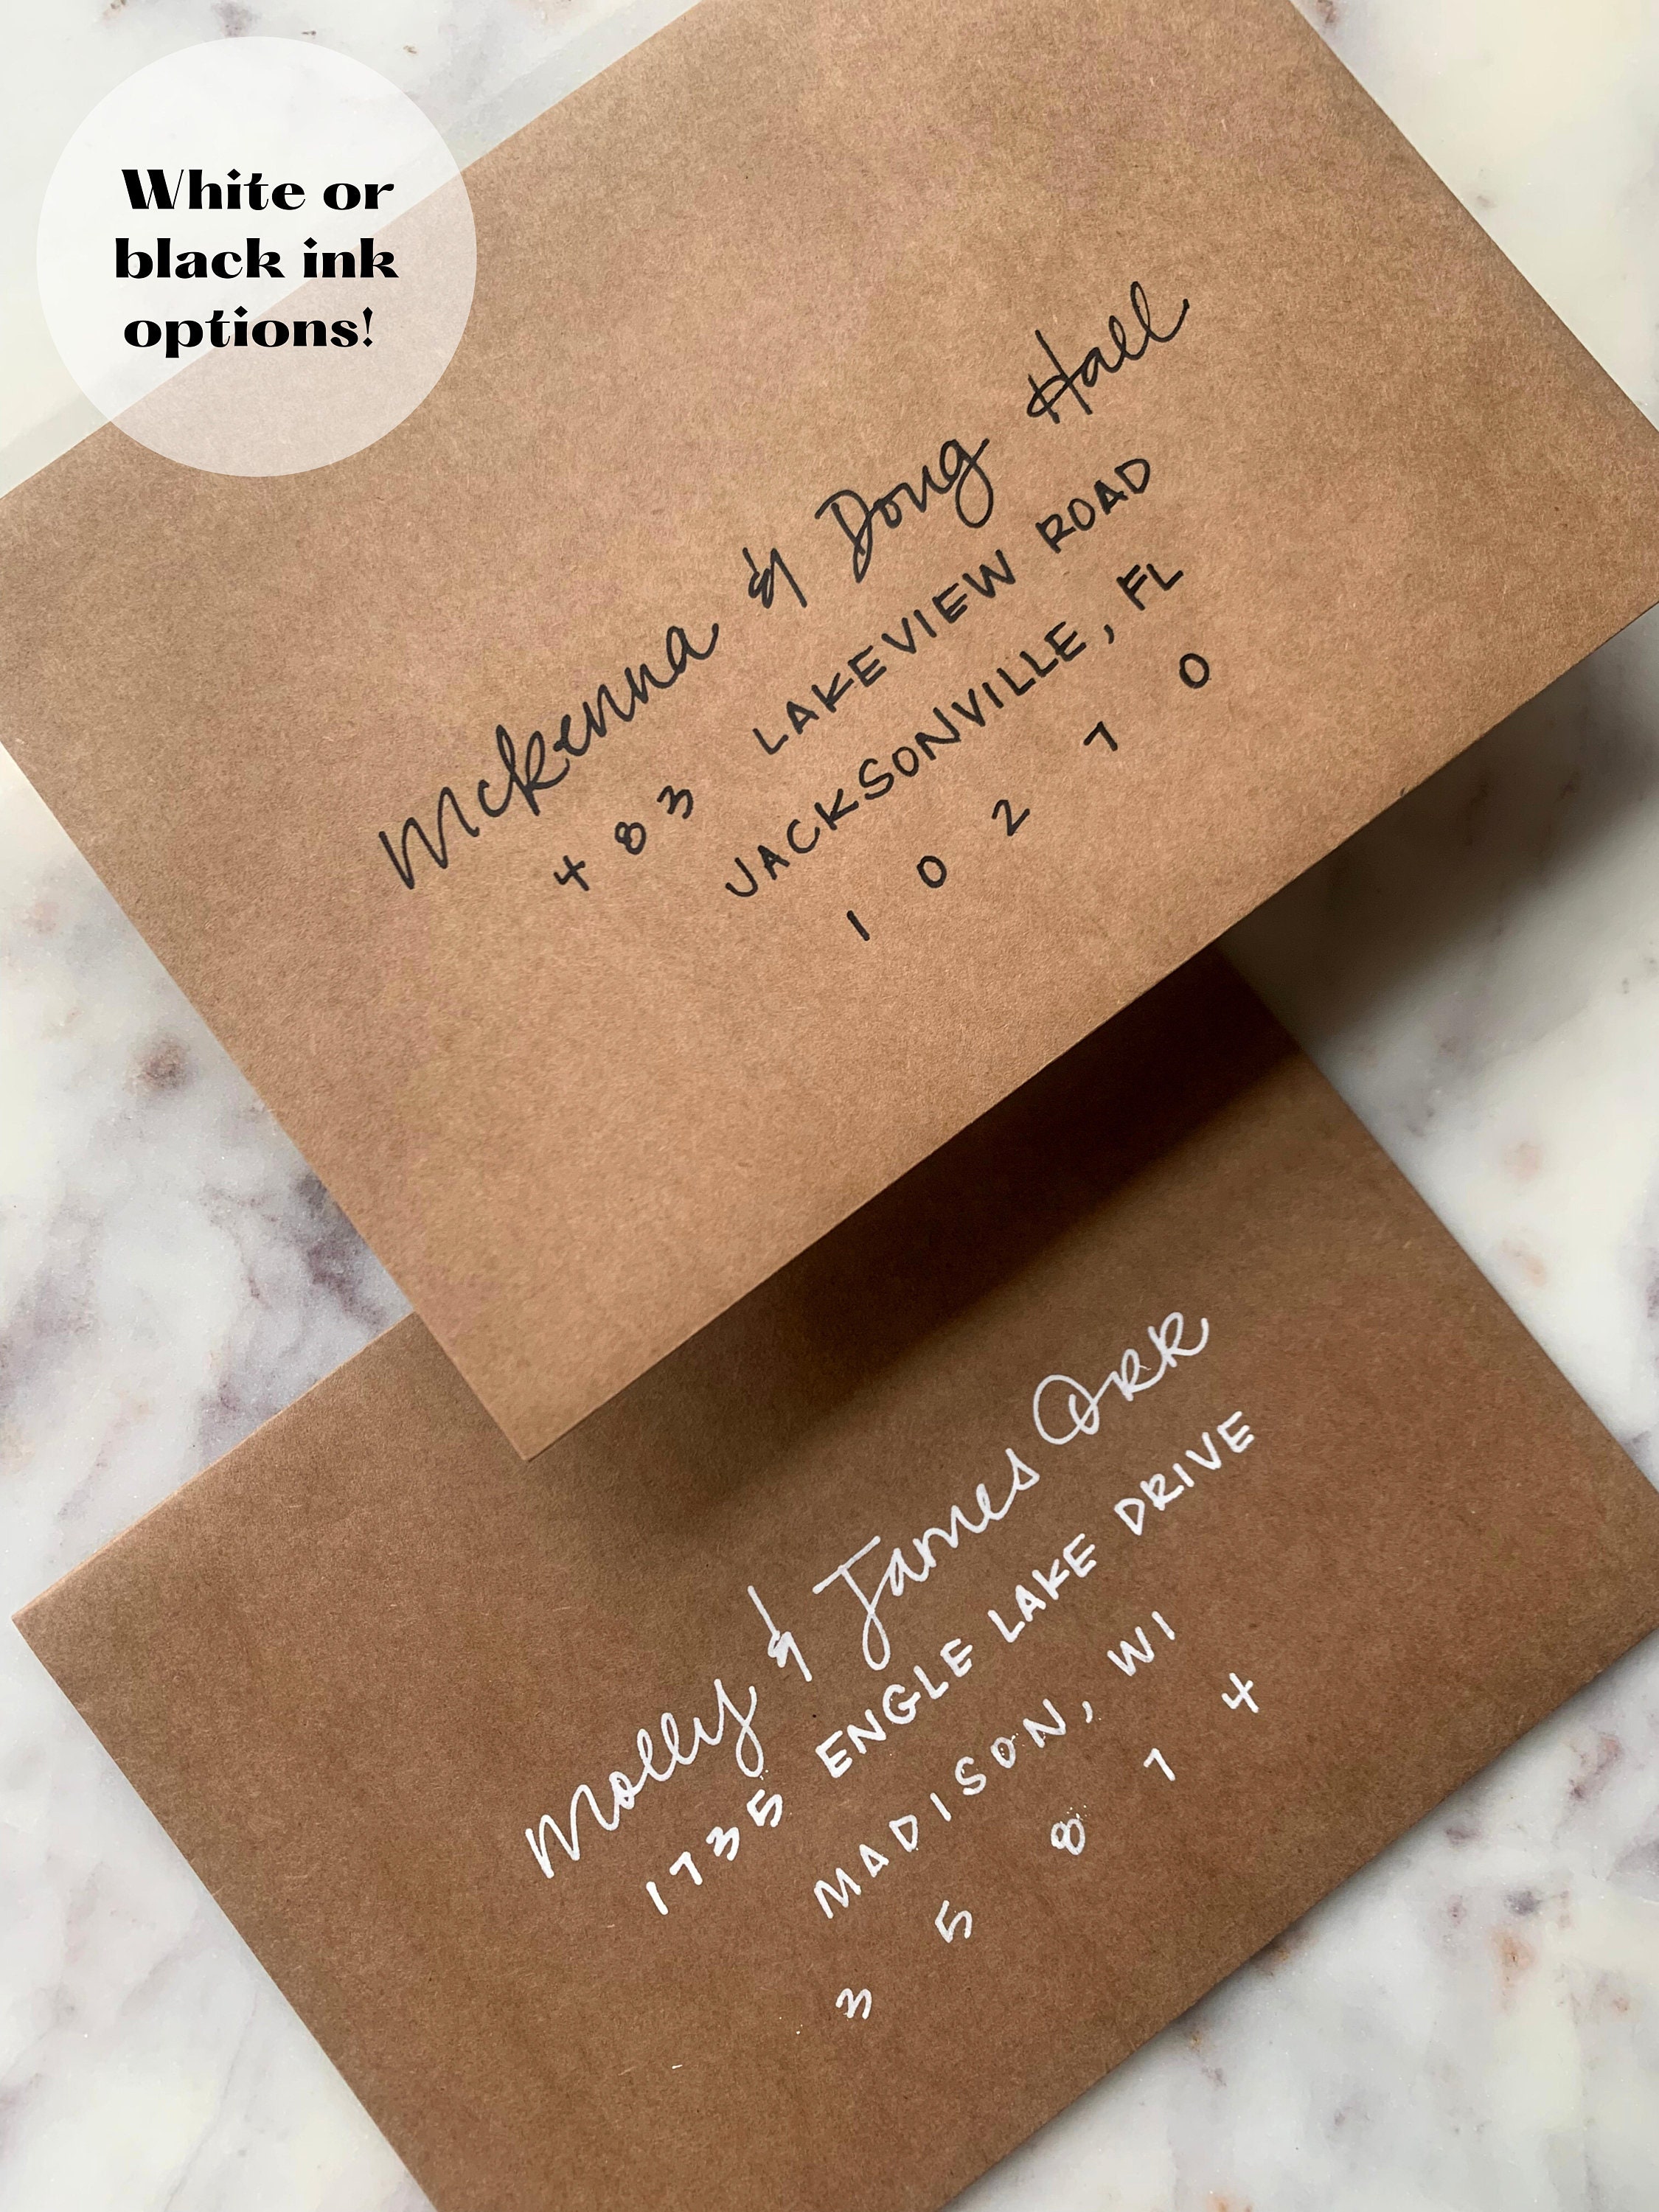 White or
black ink
options!
Mckenna & Doug Hall
483 LAKEVIEW ROAD
JACKSONVILLE, FL
10270
Molly & James Orr
1735 ENGLE LAKE DRIVE
MADISON, WI
35874